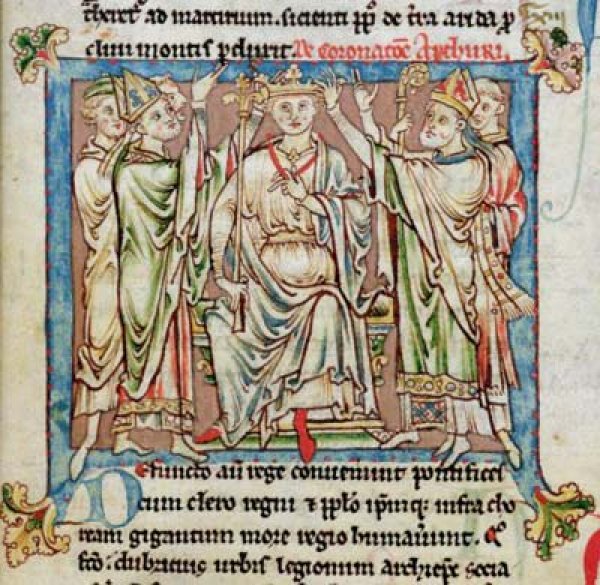 theret ad martirium. sicienti ppło de tra arida p
clium montis pduxit. De coronacōe Arthuri.
Defuncto aū rege convenerunt pontifices
cum clero regni ⁊ ppło ipmq; infra cho
ream gigantum more regio humaverunt.
dubricius urbis legionum archiepc socia